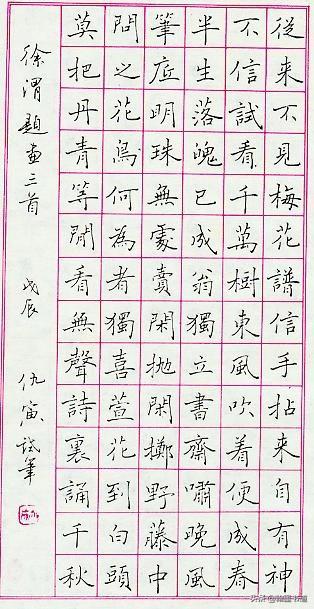 從来不見梅花譜信手拈来自有神
不信試看千萬樹東風吹着便成春
半生落魄已成翁獨立書齋嘯晚風
筆底明珠無處賣閑抛閑擲野藤中
問之花鳥何為者獨喜萱花到白頭
莫把丹青等閑看無聲詩裏誦千秋
徐渭題畫三首 戊辰 仇寅試筆